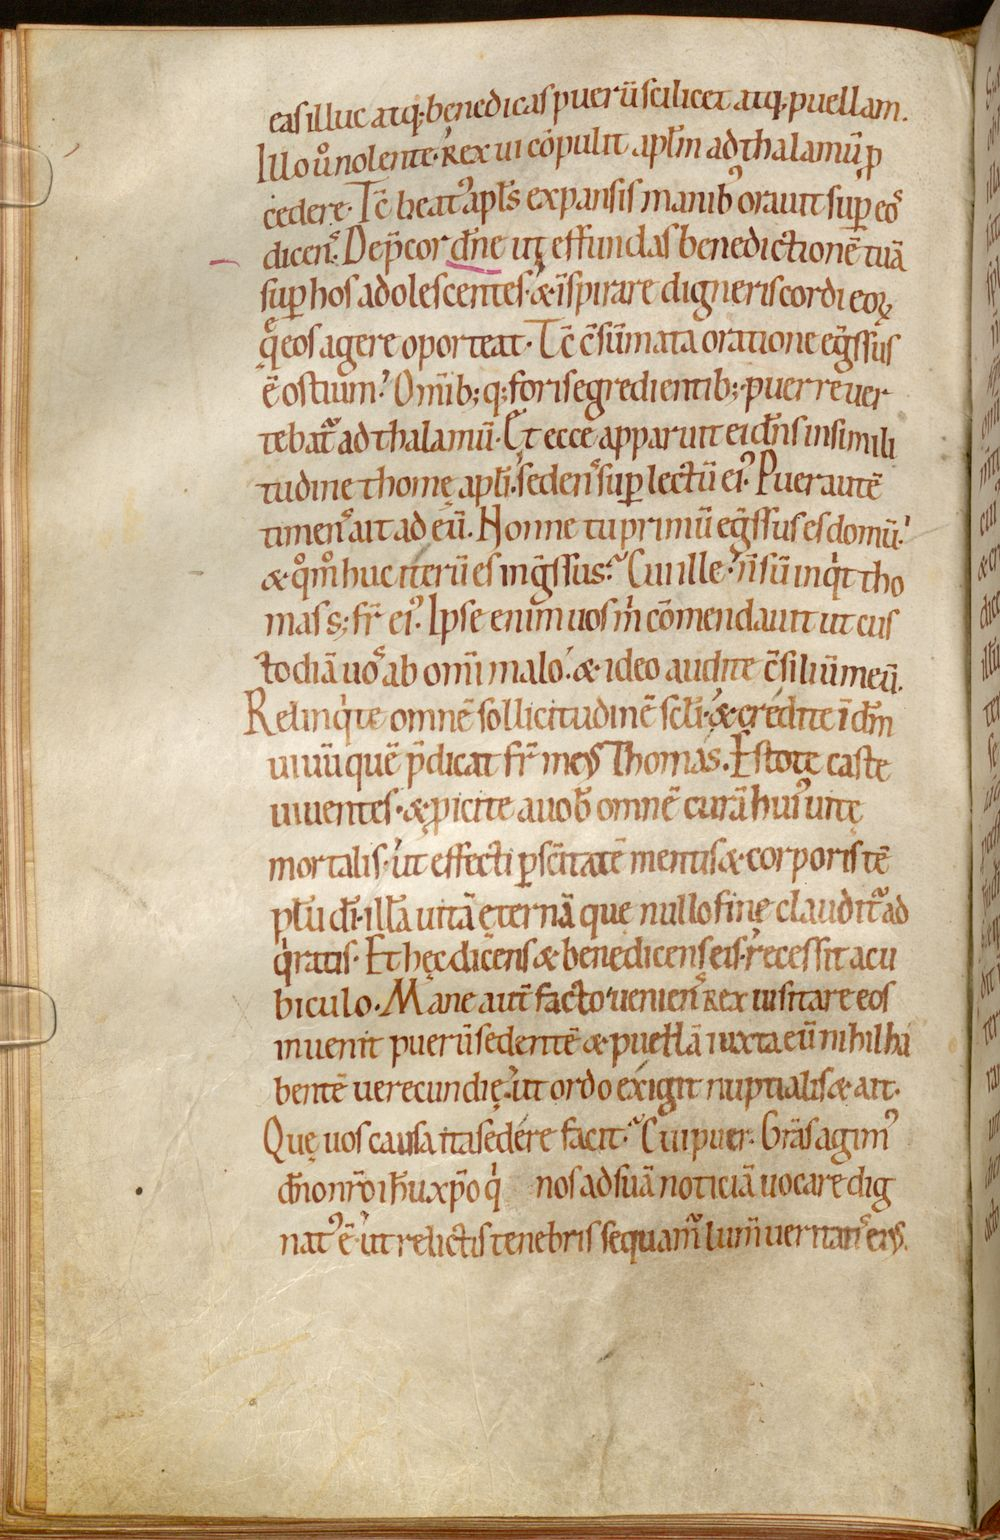 eas illuc atq; benedicas puerū scilicet atq; puellam.
Illo ů nolente. Rex ui cōpulit apl̄m ad thalamū p̄
cedere. Tc̄ beatꝰ apl̄s expansis manibꝰ orauit suꝑ eoˢ
dicenˢ. Dep̄cor dn̄e ut effundas benedictionē tuā
suꝑ hos adolescentes. & īspirare digneris cordi eoꝝ
q̄ eos agere oporteat. Tc̄ c̄sūmata oratione eg̃ssus
ē ostium. Om̄ib; q; foris egredientib; puer reuer
tebat᷑ ad thalamū. Et ecce apparuit ei dn̄s in simili
tudine thomę apl̄i. sedenˢ suꝑ lectū eiꝰ. Puer autē
timenˢ ait ad eū. Nonne tu primū eg̃ssus es domū.
& qͦmͦ huc iterū es ing̃ssus? Cui ille. n̄ sū inqͥt tho
mas s; fr̄ eiꝰ. Ipse enim uos mͥ cōmendauit ut cus
todiā uoˢ ab om̄i malo. & ideo audite c̄siliū meū.
Relinqͥte omnē sollicitudinē scl̄i. & credite ī dm̄
uiuū quē p̄dicat fr̄ meꝰ Thomas. Estote caste
uiuentes. & ꝓicite a uob̄ omnē curā huiꝰ uitę
mortalis. ut effecti ꝑ sc̄itatē mentis & corporis tē
plū dī. illā uitā ęternā que nullo fine claudit᷑ ad
qͥratis. Et hęc dicens & benedicens eis. recessit a cu
biculo. Mane aut̄ facto uenienˢ rex uisitare eos
inuenit puerū sedentē & puellā iuxta eū nihil ha
bentē uerecundię. ut ordo exigit nuptialis & ait.
Quę uos causa ita sedere facit? Cui puer. Gr̄as agimꝰ
dn̄o nr̄o ihū xp̄o qͥ nos ad suā noticiā uocare dig
natꝰ ē. ut relictis tenebris sequam᷑ lum̄ ueritatˢ eiꝰ.